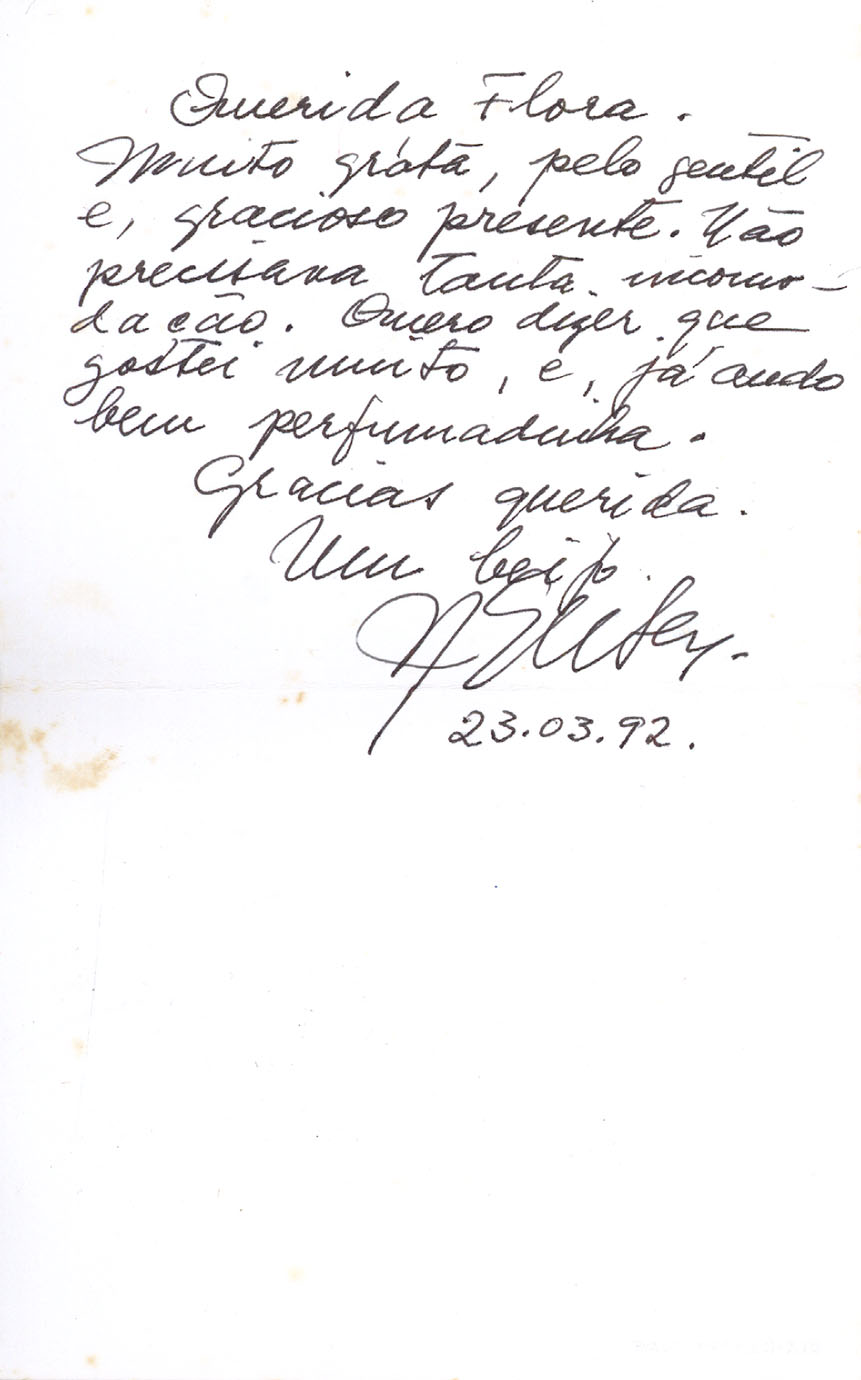 Querida Flora.
Muito grata, pelo gentil
e, gracioso presente. Não
precisava tanta incomo-
dação. Quero dizer que
gostei muito, e, já ando
bem perfumadinha.
Gracias querida.
Um beijo.
23.03.92.